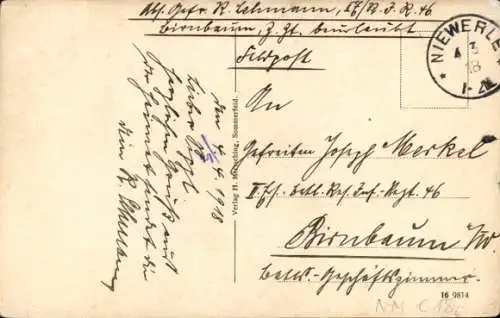 Abs. Gefr. R. Lehmann, II/R. J. R. 46
Birnbaum, z. Zt. beurlaubt
Feldpost
NIEWERLE
4 3 18
1-2N
den 4.4.1918
Lieber Sepp!
Herzliche Grüße aus
der Heimat sendet dir
dein R. Lehmann
Verlag H. Mertsching, Sommerfeld.
An
Gefreiten Joseph Merkel
II. Ers. Batl. Res. Inf. Regt. 46
Birnbaum
Batls.-Geschäftszimmer.
16 9814